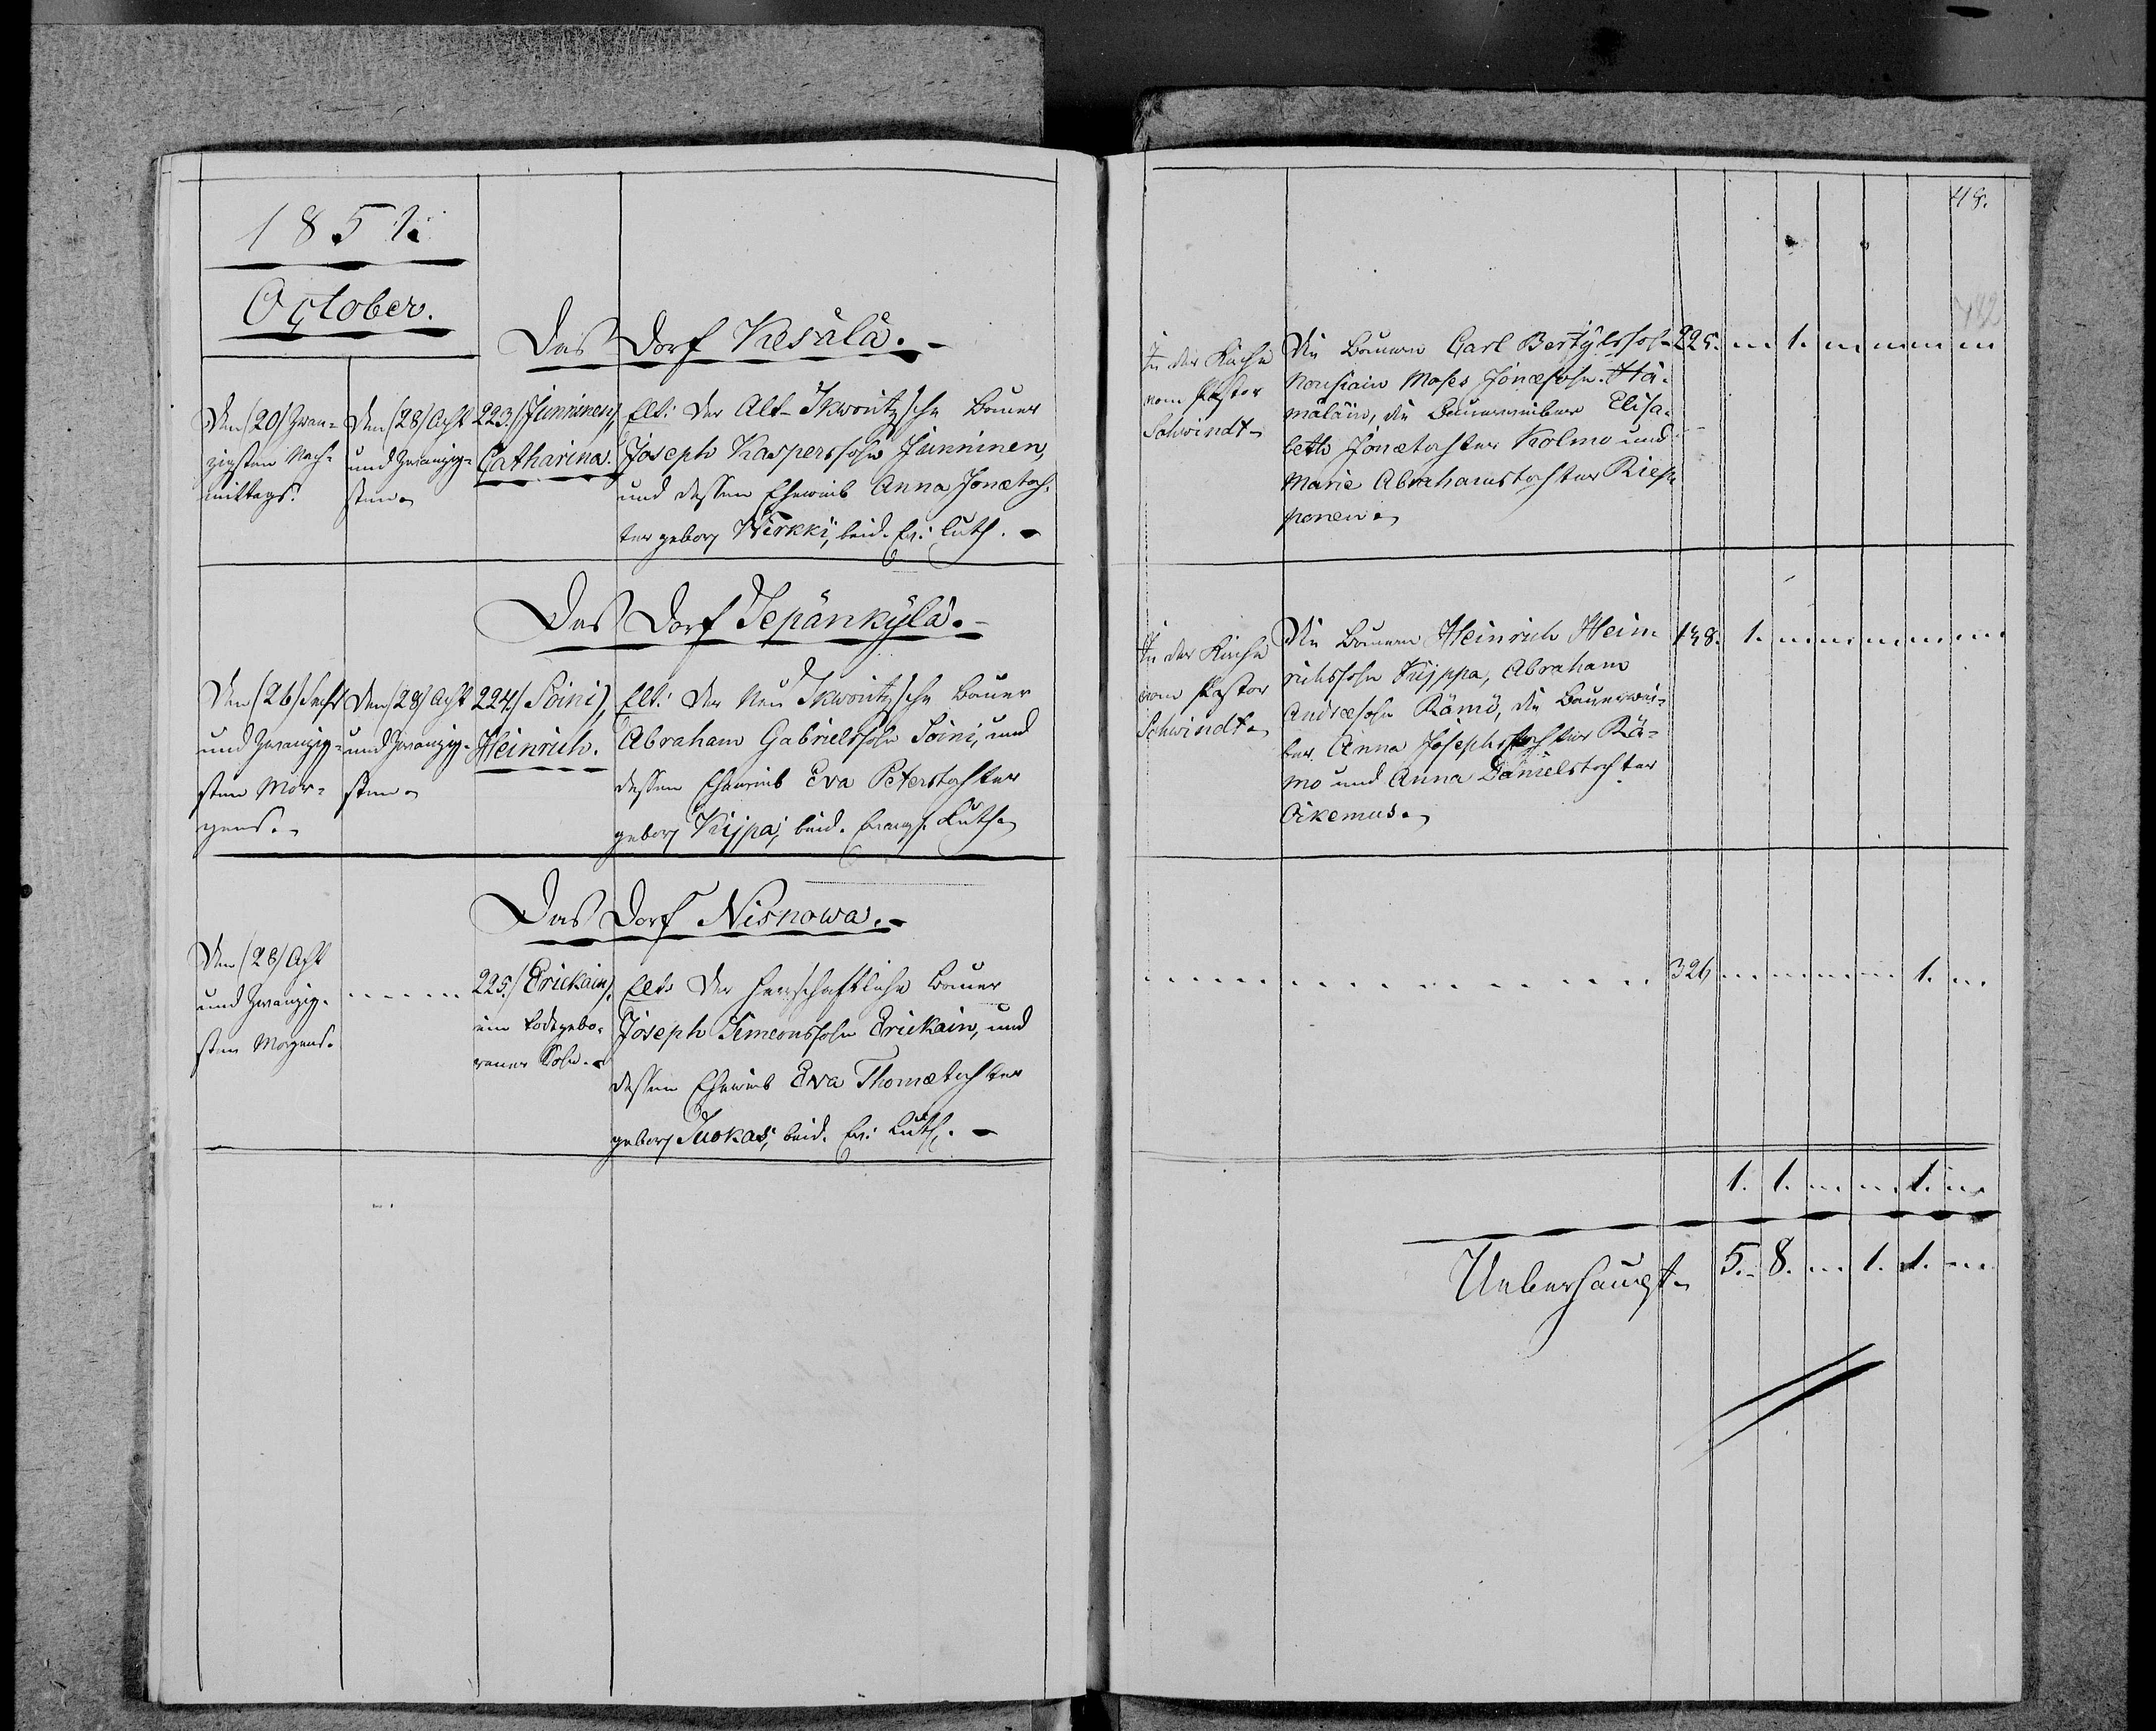 1851.
October.
Das Dorf Kesälä.
Den (20) Zwan-
zigsten Nach-
mittags.
Den (28) Acht
und Zwanzig-
sten
223.) Junninen,
Catharina.
Elt: Der Alt-Ikwoutzsche Bauer
Joseph Kaspersohn Junninen,
und dessen Eheweib Anna Jonætoch-
ter geborn Wirkki, beid. Ev: Luth.
Das Dorf Sepänkylä.
Den (26) Sechs
und Zwanzig-
sten Mor-
gens.
Den (28) Acht
und Zwanzig-
sten
224.) Soini,
Heinrich.
Elt: Der Neu Ikwoutzsche Bauer
Abraham Gabrielssohn Soini, und
dessen Eheweib Eva Peterstochter
geborn Kujpa, beid. Evang. Luth.
Das Dorf Nisnowa.
Den (28) Acht
und Zwanzig-
sten Morgens.
225.) Erickain,
ein todtgebo-
rener Sohn.
Elt: Der herschaftliche Bauer
Joseph Simeonssohn Erickain, und
dessen Eheweib Eva Thomætochter
geborn Juokas, beid. Ev: Luth.
48.
In der Kirche
vom Pastor
Schwindt
Die Bauern Carl Bertylssohn
Nousiain Moses Jonæsohn Hä-
mäläin, die Bauerweiber Elisa-
beth Jonætochter Kolmo und
Marie Abrahamstochter Riep-
ponen.
225. 1.
In der Kirche
vom Pastor
Schwindt
Die Bauern Heinrich Hein
richssohn Kujppa, Abraham
Andreæsohn Rämö, die Bauerwei-
ber Anna Josephstochter Rä-
mö und Anna Danielstochter
Oikemus.
138. 1.
326 1.
1. 1. 1.
Ueberhaupt 5. 8. 1. 1.